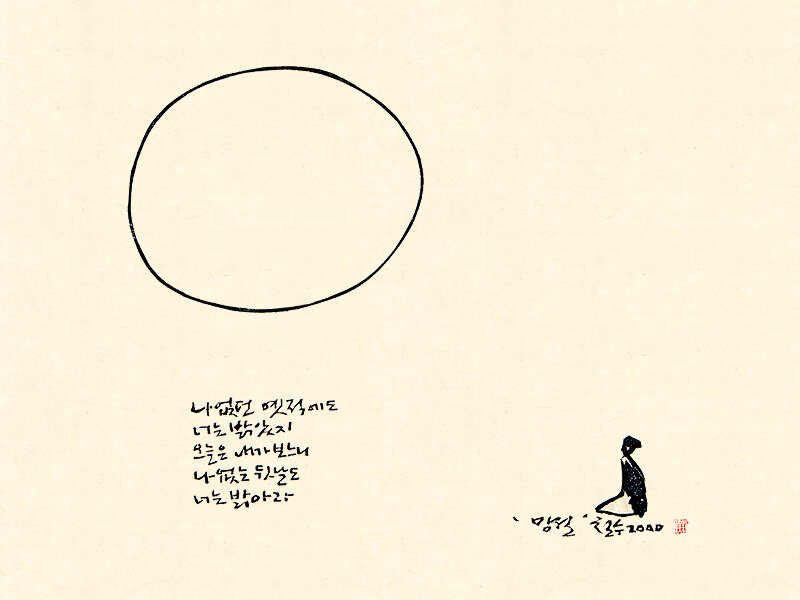 나 없던 옛적에도
너는 밝았지
오늘은 내가 보느니
나 없는 뒷날도
너는 밝아라
'망월' 철수 2000